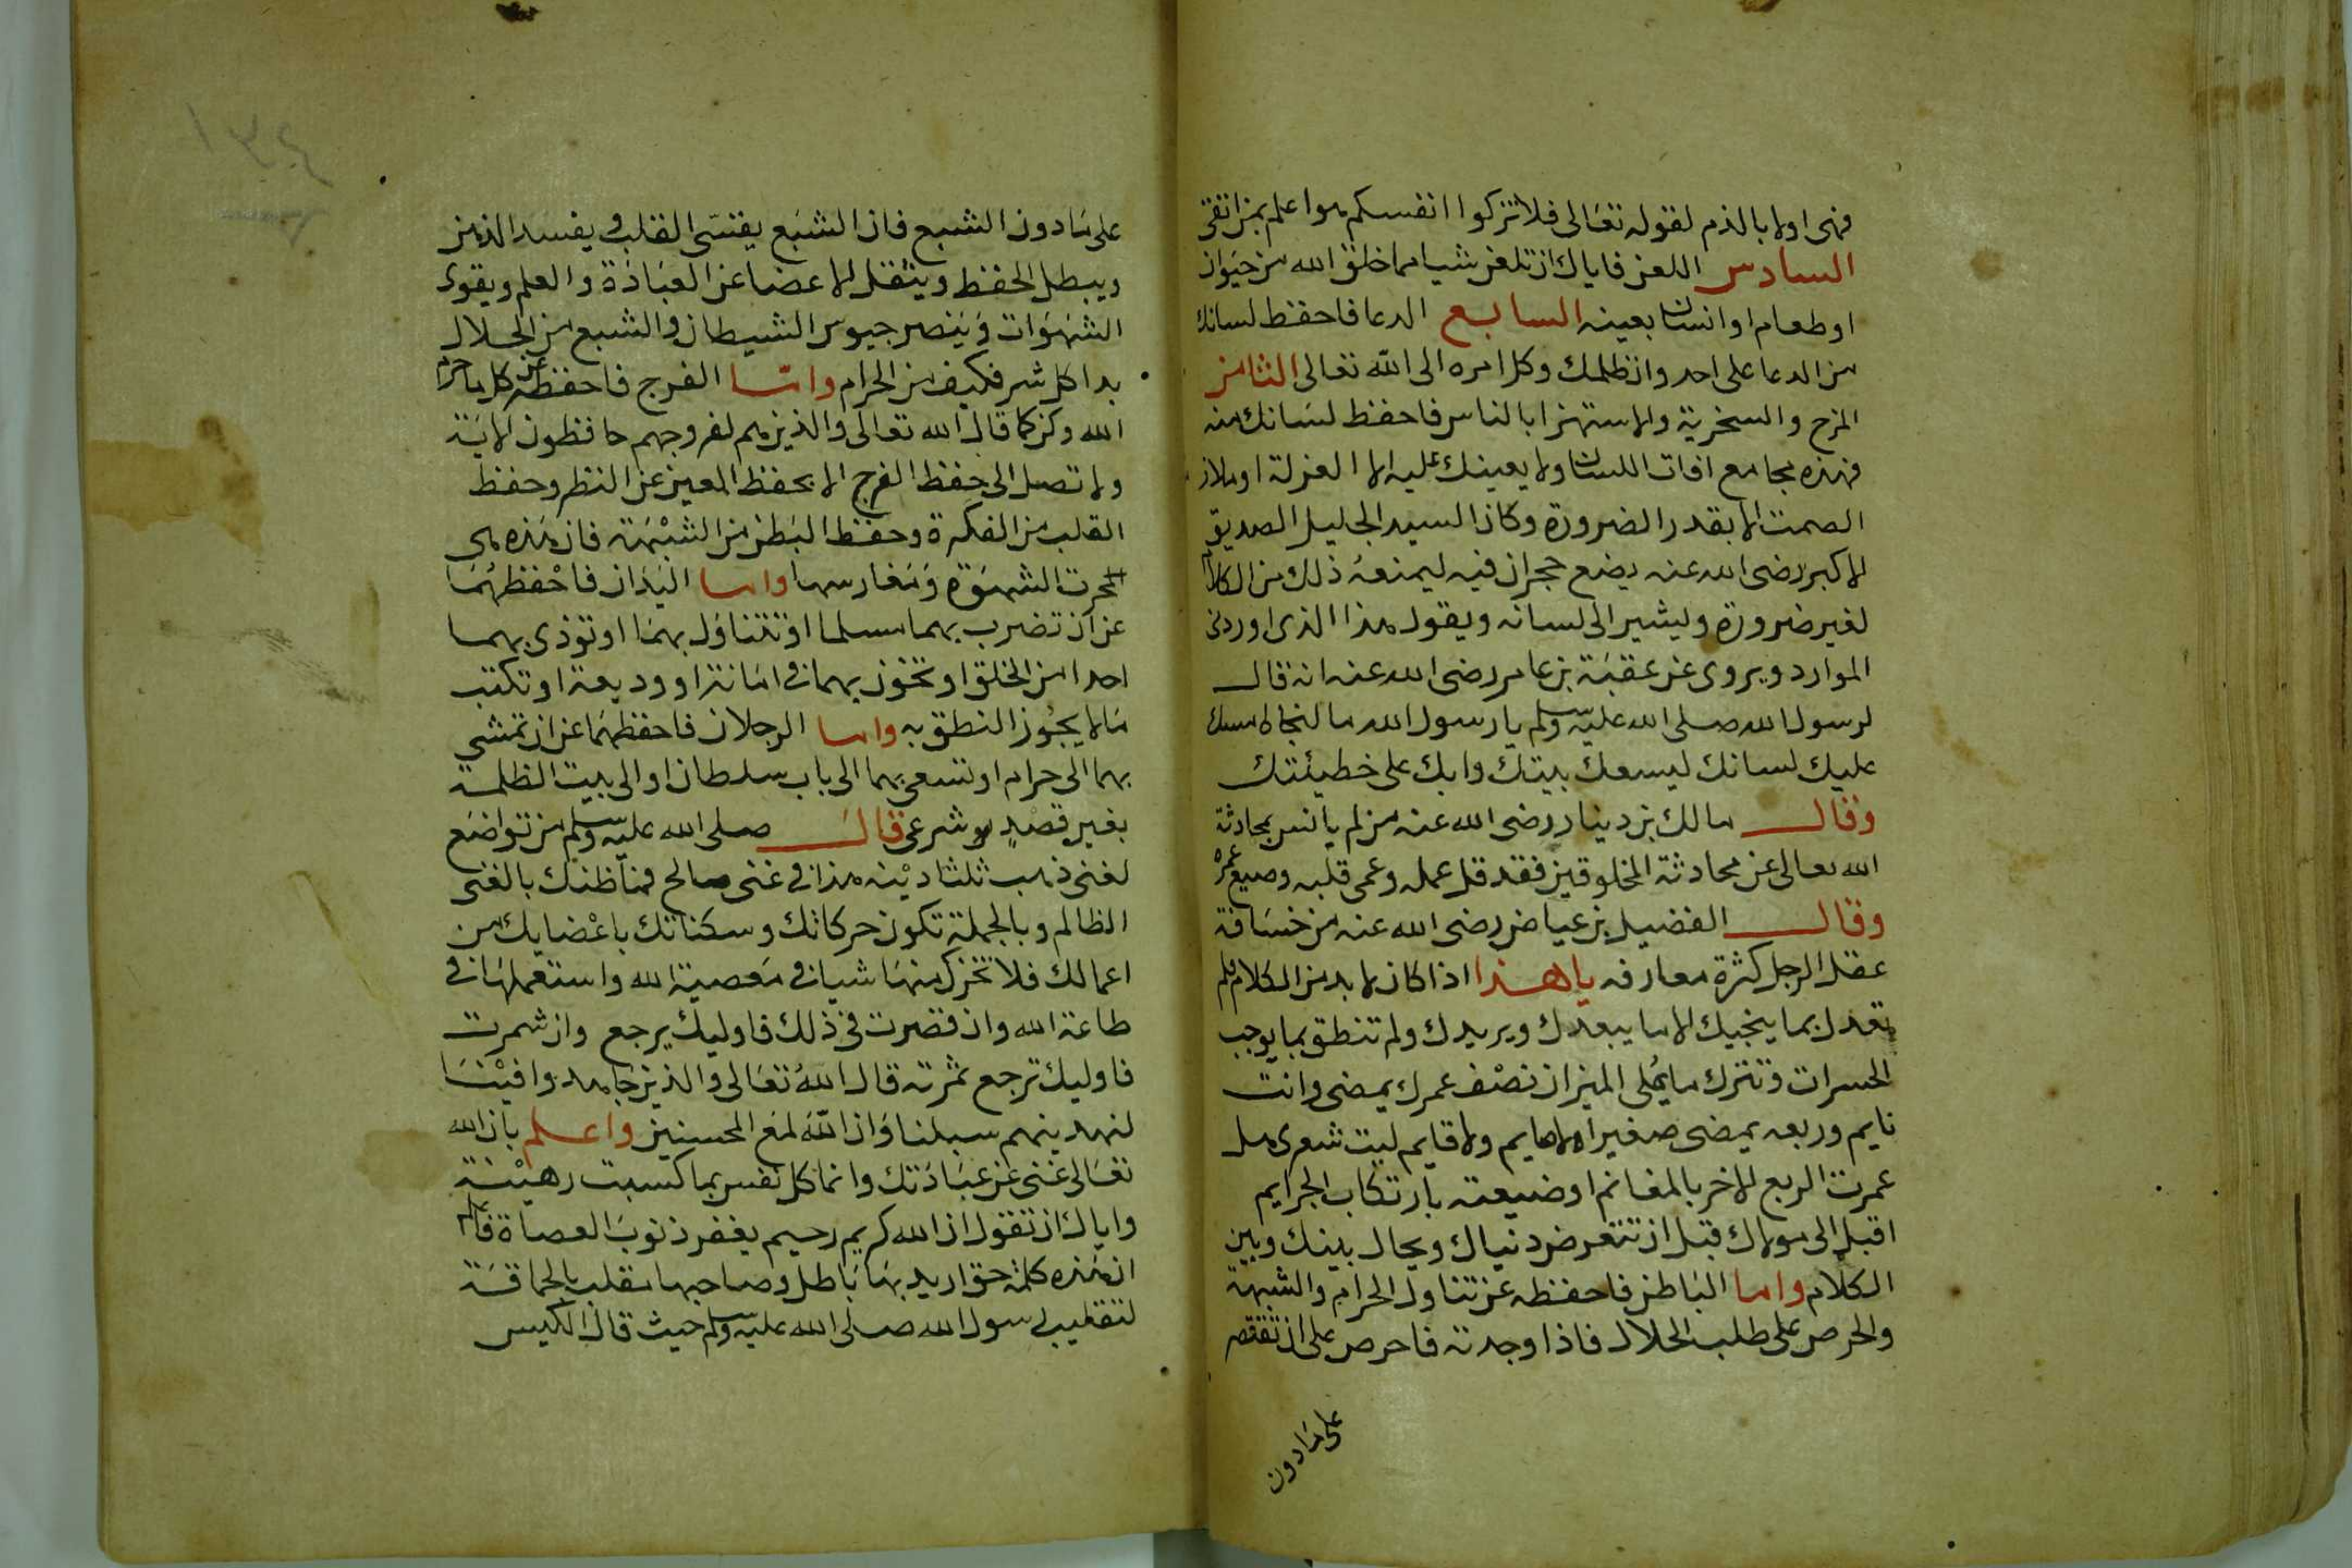 فهى اولا بالذم لقوله تعالى فلا تزكوا انفسكم هوا علم بمن اتقى
السادس اللعن فاياك ان تلعن شيا مما خلق الله من حيوان
او طعام او انسان بعينه السابع الدعا فاحفظ لسانك
من الدعا على احد وان ظلمك وكل امره الى الله تعالى الثامن
المزح والسخرية والاستهزا بالناس فاحفظ لسانك منه
فهذه مجامع افات اللسان ولا يعينك عليه الا العزلة او ملاز
الصمت الا بقدر الضرورة وكان السيد الجليل الصديق
الاكبر رضى الله عنه يضع حجرا فى فيه ليمنعه ذلك من الكلام
لغير ضرورة وليشير الى لسانه ويقول هذا الذى اوردنى
الموارد ويروى عن عقبة بن عامر رضى الله عنه انه قال
لرسول الله صلى الله عليه وسلم يا رسول الله ما لنجاة امسك
عليك لسانك ليسعك بيتك وابك على خطيئتك
وقال مالك بن دينار رضى الله عنه من لم يانس بمحادثة
الله تعالى عن محادثة المخلوقين فقد قل عمله وعمى قلبه وضيع عمره
وقال الفضيل بن عياض رضى الله عنه من خسافة
عقل الرجل كثرة معارفه يا هذا اذا كان لا بد من الكلام فلم
تعدل بما ينجيك الا ما يبعدك ويريدك ولم تنطق بما يوجب
الحسرات وتترك ما يملى الميزان نصف عمرك يمضى وانت
نايم وربعه يمضى صغيرا لا هايم ولا قايم ليت شعرى هل
عمرت الربع الاخر بالمغانم او ضيعته بارتكاب الجرايم
اقبل الى مولاك قبل ان تتعرض دنياك ويحال بينك وبين
الكلام واما الباطن فاحفظه عن تناول الحرام والشبهة
والحرص على طلب الحلال فاذا وجدته فاحرص على ان تقتصر
على مادون
على مادون الشبع فان الشبع يقسى القلب ويفسد الذهن
ويبطل الحفظ ويثقل الاعضا عن العبادة والعلم ويقوى
الشهوات وينصر جيوس الشيطان والشبع من الحلال
بدا كل شر فكيف من الحرام واما الفرج فاحفظه عن كل ما حرم
الله وكن كما قال الله تعالى والذين هم لفروجهم حافظون الاية
ولا تصل الى حفظ الفرج الا بحفظ العين عن النظر وحفظ
القلب من الفكرة وحفظ البطن من الشبهة فان هذه هى
محرت الشهوة ومغارسها واما اليدان فاحفظهما
عن ان تضرب بهما مسلما او تتناول بهما او توذى بهما
احدا من الخلق او تخون بهما فى امانة او وديعة او تكتب
ما لا يجوز النطق به واما الرجلان فاحفظهما عن ان تمشى
بهما الى حرام او تسعى بهما الى باب سلطان او الى بيت الظلمة
بغير قصد شرعى قال صلى الله عليه وسلم من تواضع
لغنى ذهب ثلثا دينه هذا فى غنى صالح فما ظنك بالغنى
الظالم وبالجملة تكون حركاتك وسكناتك باعضايك من
اعمالك فلا تحرك منها شيا فى معصية الله واستعملها فى
طاعة الله وان قصرت فى ذلك فاوليك يرجع وان شمرت
فاوليك ترجع ثمرته قال الله تعالى والذين جاهدوا فينا
لنهدينهم سبلنا وان الله لمع المحسنين واعلم بان الله
تعالى غنى عن عبادتك وانما كل نفس بما كسبت رهينة
واياك ان تقول ان الله كريم رحيم يغفر ذنوب العصاة فاعلم
ان هذه كلمة حق اريد بها باطل وصاحبها ملقب بالحماقة
لتقليب رسول الله صلى الله عليه وسلم حيث قال الكيس